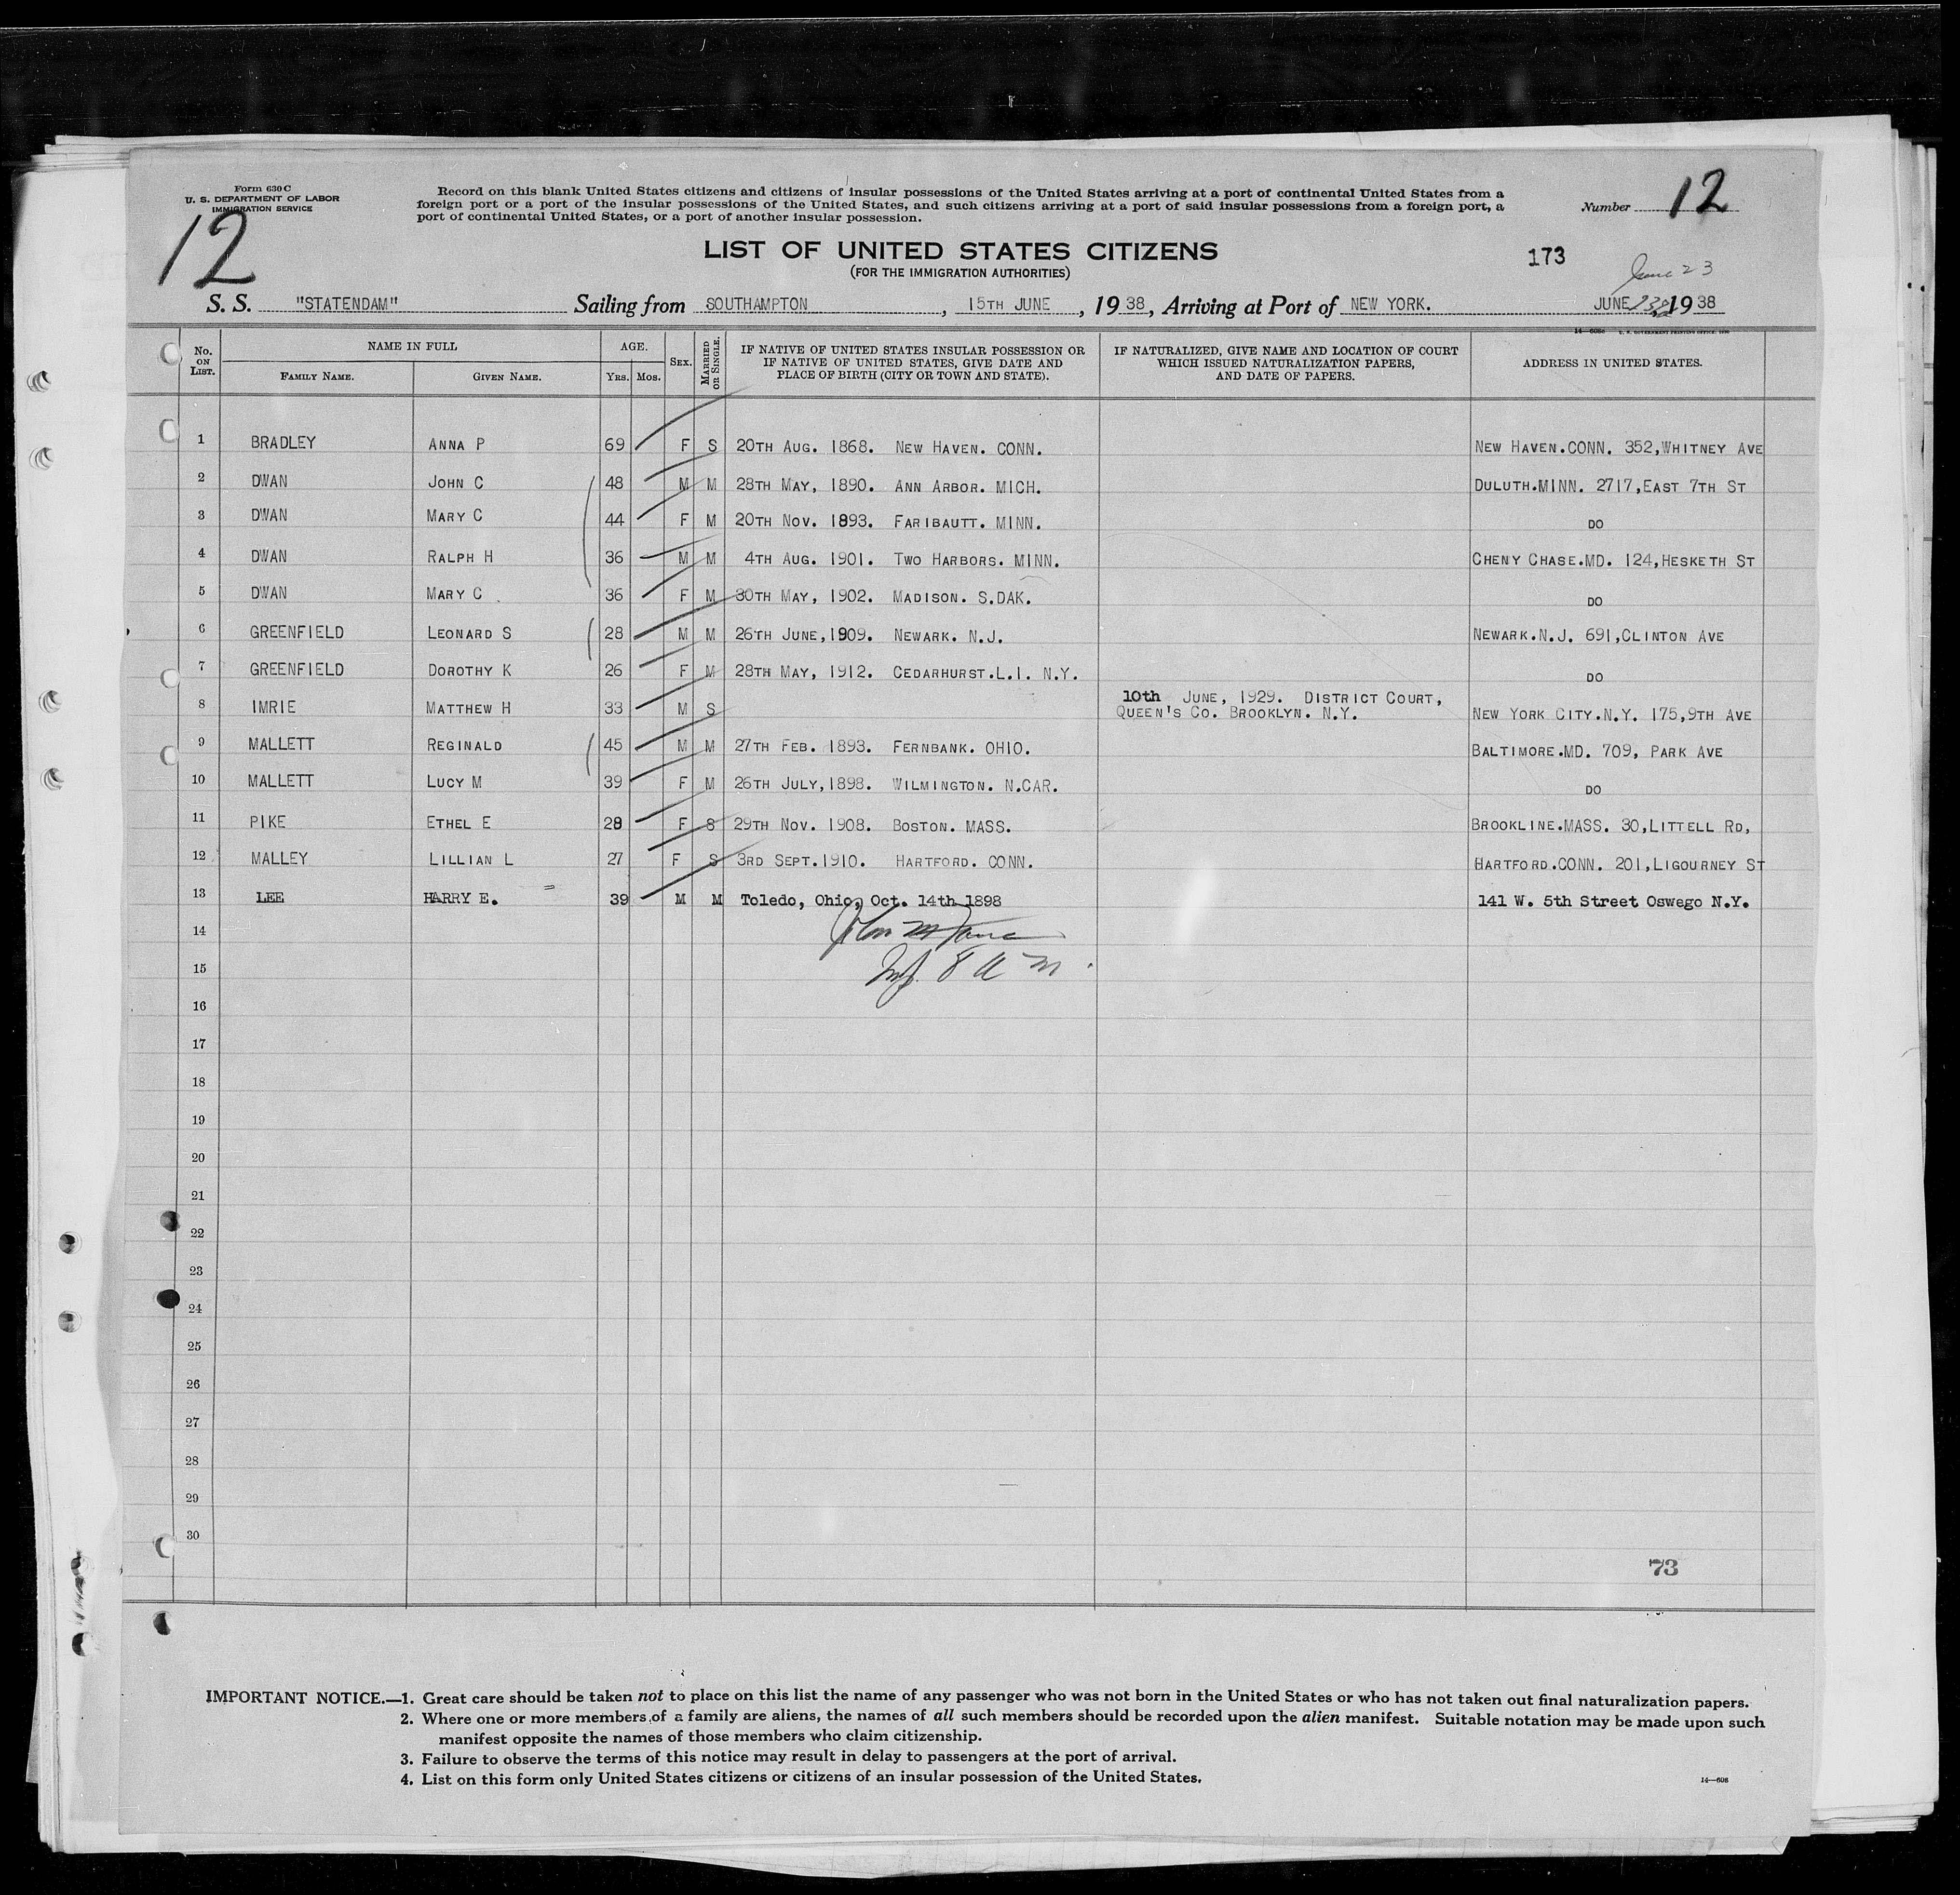 Form 630 C
U. S. DEPARTMENT OF LABOR
IMMIGRATION SERVICE
12
Record on this blank United States citizens and citizens of insular possessions of the United States arriving at a port of continental United States from a
foreign port or a port of the insular possessions of the United States, and such citizens arriving at a port of said insular possessions from a foreign port, a
port of continental United States, or a port of another insular possession.
Number 12
LIST OF UNITED STATES CITIZENS
(FOR THE IMMIGRATION AUTHORITIES)
173
June 23
S. S. "STATENDAM" Sailing from SOUTHAMPTON, 15TH JUNE, 1938, Arriving at Port of NEW YORK. JUNE 1938
No. ON LIST. NAME IN FULL FAMILY NAME. GIVEN NAME. AGE. YRS. MOS. SEX. MARRIED OR SINGLE. IF NATIVE OF UNITED STATES INSULAR POSSESSION OR IF NATIVE OF UNITED STATES, GIVE DATE AND PLACE OF BIRTH (CITY OR TOWN AND STATE). IF NATURALIZED, GIVE NAME AND LOCATION OF COURT WHICH ISSUED NATURALIZATION PAPERS, AND DATE OF PAPERS. ADDRESS IN UNITED STATES.
1 BRADLEY ANNA P 69 F S 20TH AUG. 1868. NEW HAVEN. CONN. NEW HAVEN.CONN. 352,WHITNEY AVE
2 DWAN JOHN C 48 M M 28TH MAY, 1890. ANN ARBOR. MICH. DULUTH.MINN. 2717,EAST 7TH ST
3 DWAN MARY C 44 F M 20TH NOV. 1893. FARIBAUTT. MINN. DO
4 DWAN RALPH H 36 M M 4TH AUG. 1901. TWO HARBORS. MINN. CHENY CHASE.MD. 124,HESKETH ST
5 DWAN MARY C 36 F M 30TH MAY, 1902. MADISON. S.DAK. DO
6 GREENFIELD LEONARD S 28 M M 26TH JUNE,1909. NEWARK. N.J. NEWARK.N.J. 691,CLINTON AVE
7 GREENFIELD DOROTHY K 26 F M 28TH MAY, 1912. CEDARHURST.L.I. N.Y. DO
8 IMRIE MATTHEW H 33 M S 10th JUNE, 1929. DISTRICT COURT, QUEEN'S CO. BROOKLYN. N.Y. NEW YORK CITY.N.Y. 175,9TH AVE
9 MALLETT REGINALD 45 M M 27TH FEB. 1893. FERNBANK. OHIO. BALTIMORE.MD. 709, PARK AVE
10 MALLETT LUCY M 39 F M 26TH JULY,1898. WILMINGTON. N.CAR. DO
11 PIKE ETHEL E 28 F S 29TH NOV. 1908. BOSTON. MASS. BROOKLINE.MASS. 30,LITTELL RD,
12 MALLEY LILLIAN L 27 F S 3RD SEPT.1910. HARTFORD. CONN. HARTFORD.CONN. 201,LIGOURNEY ST
13 LEE HARRY E. 39 M M Toledo, Ohio, Oct. 14th 1898 141 W. 5th Street Oswego N.Y.
14
15
16
17
18
19
20
21
22
23
24
25
26
27
28
29
30
73
IMPORTANT NOTICE.—1. Great care should be taken not to place on this list the name of any passenger who was not born in the United States or who has not taken out final naturalization papers.
2. Where one or more members of a family are aliens, the names of all such members should be recorded upon the alien manifest. Suitable notation may be made upon such
manifest opposite the names of those members who claim citizenship.
3. Failure to observe the terms of this notice may result in delay to passengers at the port of arrival.
4. List on this form only United States citizens or citizens of an insular possession of the United States.
14—608